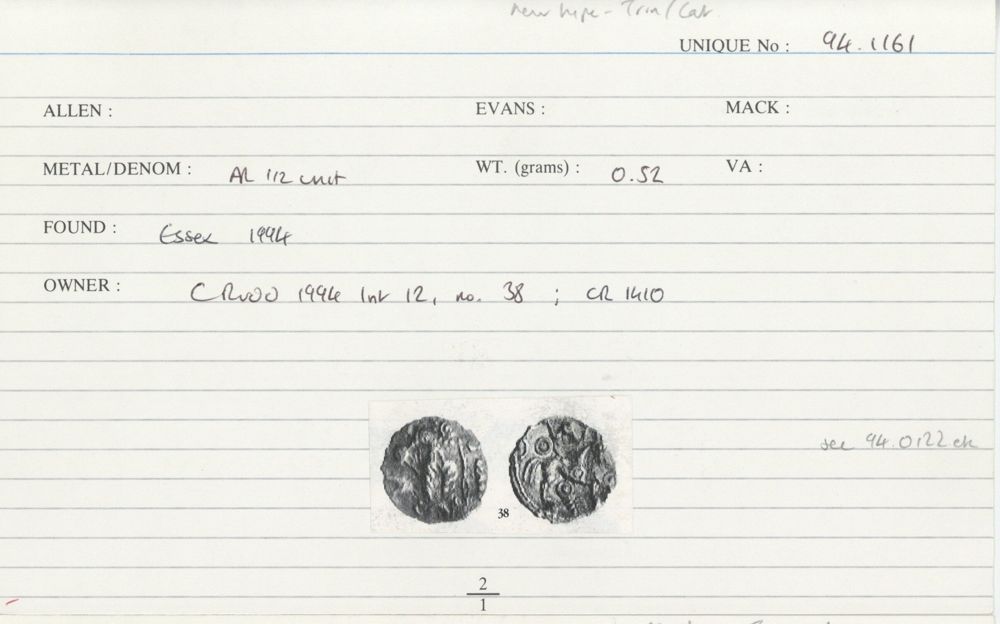 new type - Trin/Cat
UNIQUE No : 94.1161
ALLEN : EVANS : MACK :
METAL/DENOM : AR 1/2 unit WT. (grams) : 0.52 VA :
FOUND : Essex 1994
OWNER : C Rudd 1994 list 12, no. 38 ; CR 1410
see 94.0122 ck
38
2
1